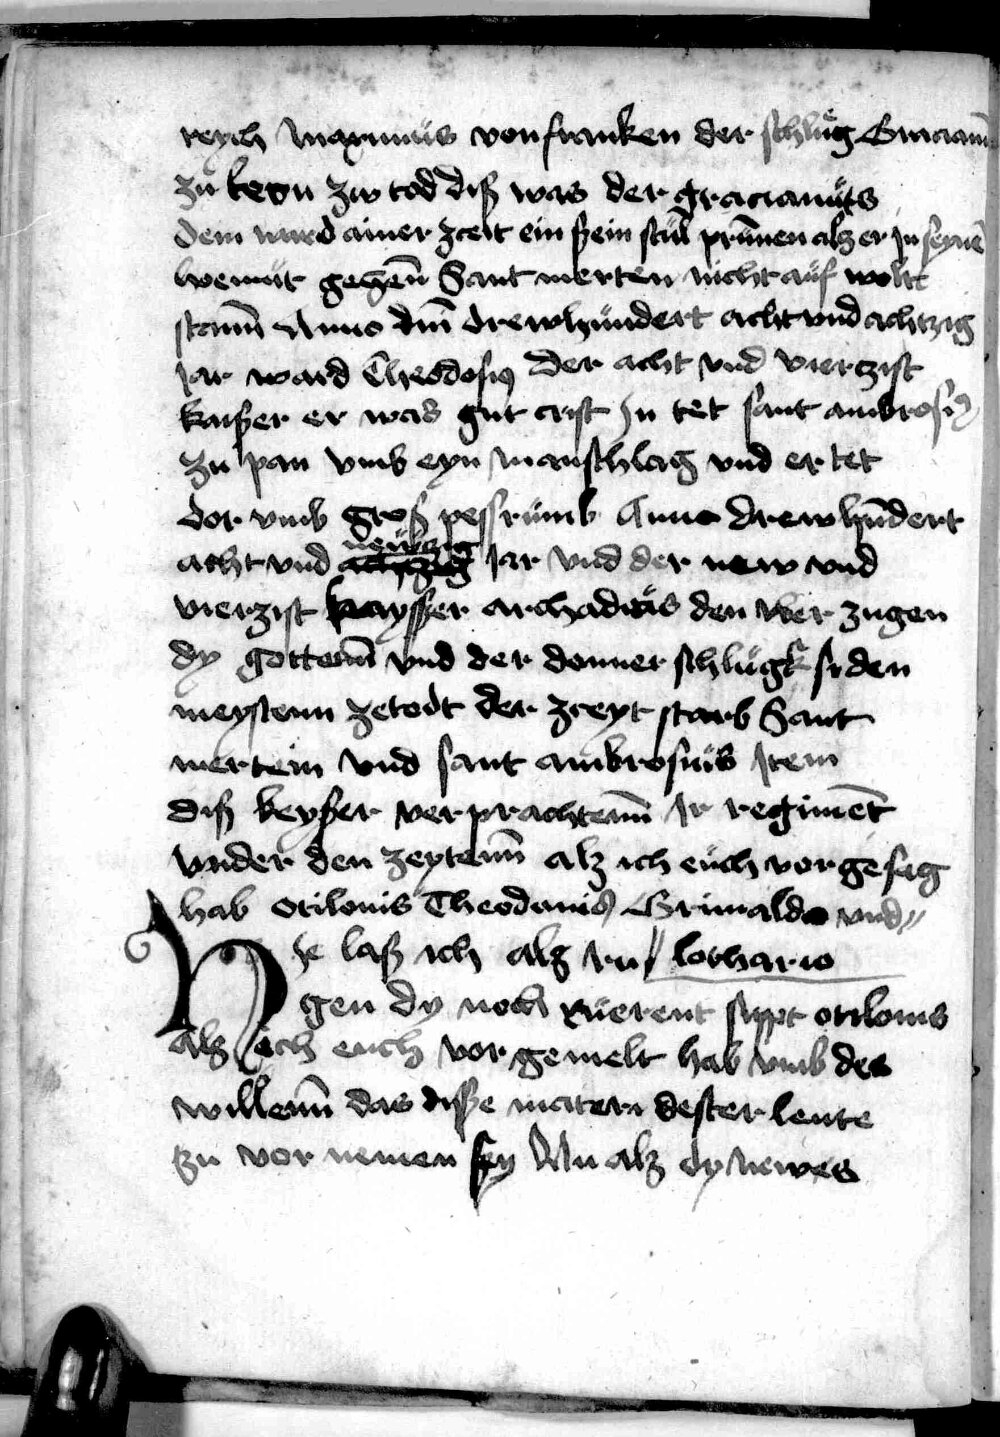 reych Maximus von franken der schlug Gracianū
zu leon zw tod diß was der gracianuts
Dem ward ainer zceit ein sein stul prünnen alz er in seynē
hemut gegenn Sant merten nicht auf wolt
stann Anno dni drewhundert acht vnd achtzig
Jar ward Theodosi9 Der acht vnd vierczist
kaiser er was gut crist In tet sant ambrosi9
zu pan vmb eyn manschlag vnd er tet
dor vmb groß pessrumb Anno drewhūdert
newtzig
acht vnd achtzig Jar vnd der new vnd
vierzist kaysser archadius den vber zugen
dy gottenn vnd der donner schlugk si den
meystenn zetodt der zceyt starb Sant
mertein vnd sant ambrosius Item
diß keyser verprachtenn Ir regimēt
vnder den zeytenn alz ich euch vor gesag
hab otilonis Theodonis Grimaldo vnd
Hye laß ich alz ru lothario
gen dy noch rüerent suppt otilonis
alz ich euch vor gemelt hab vmb des
willenn das disse materi dester leute
zu vor nemen sey Nu alz dy newes